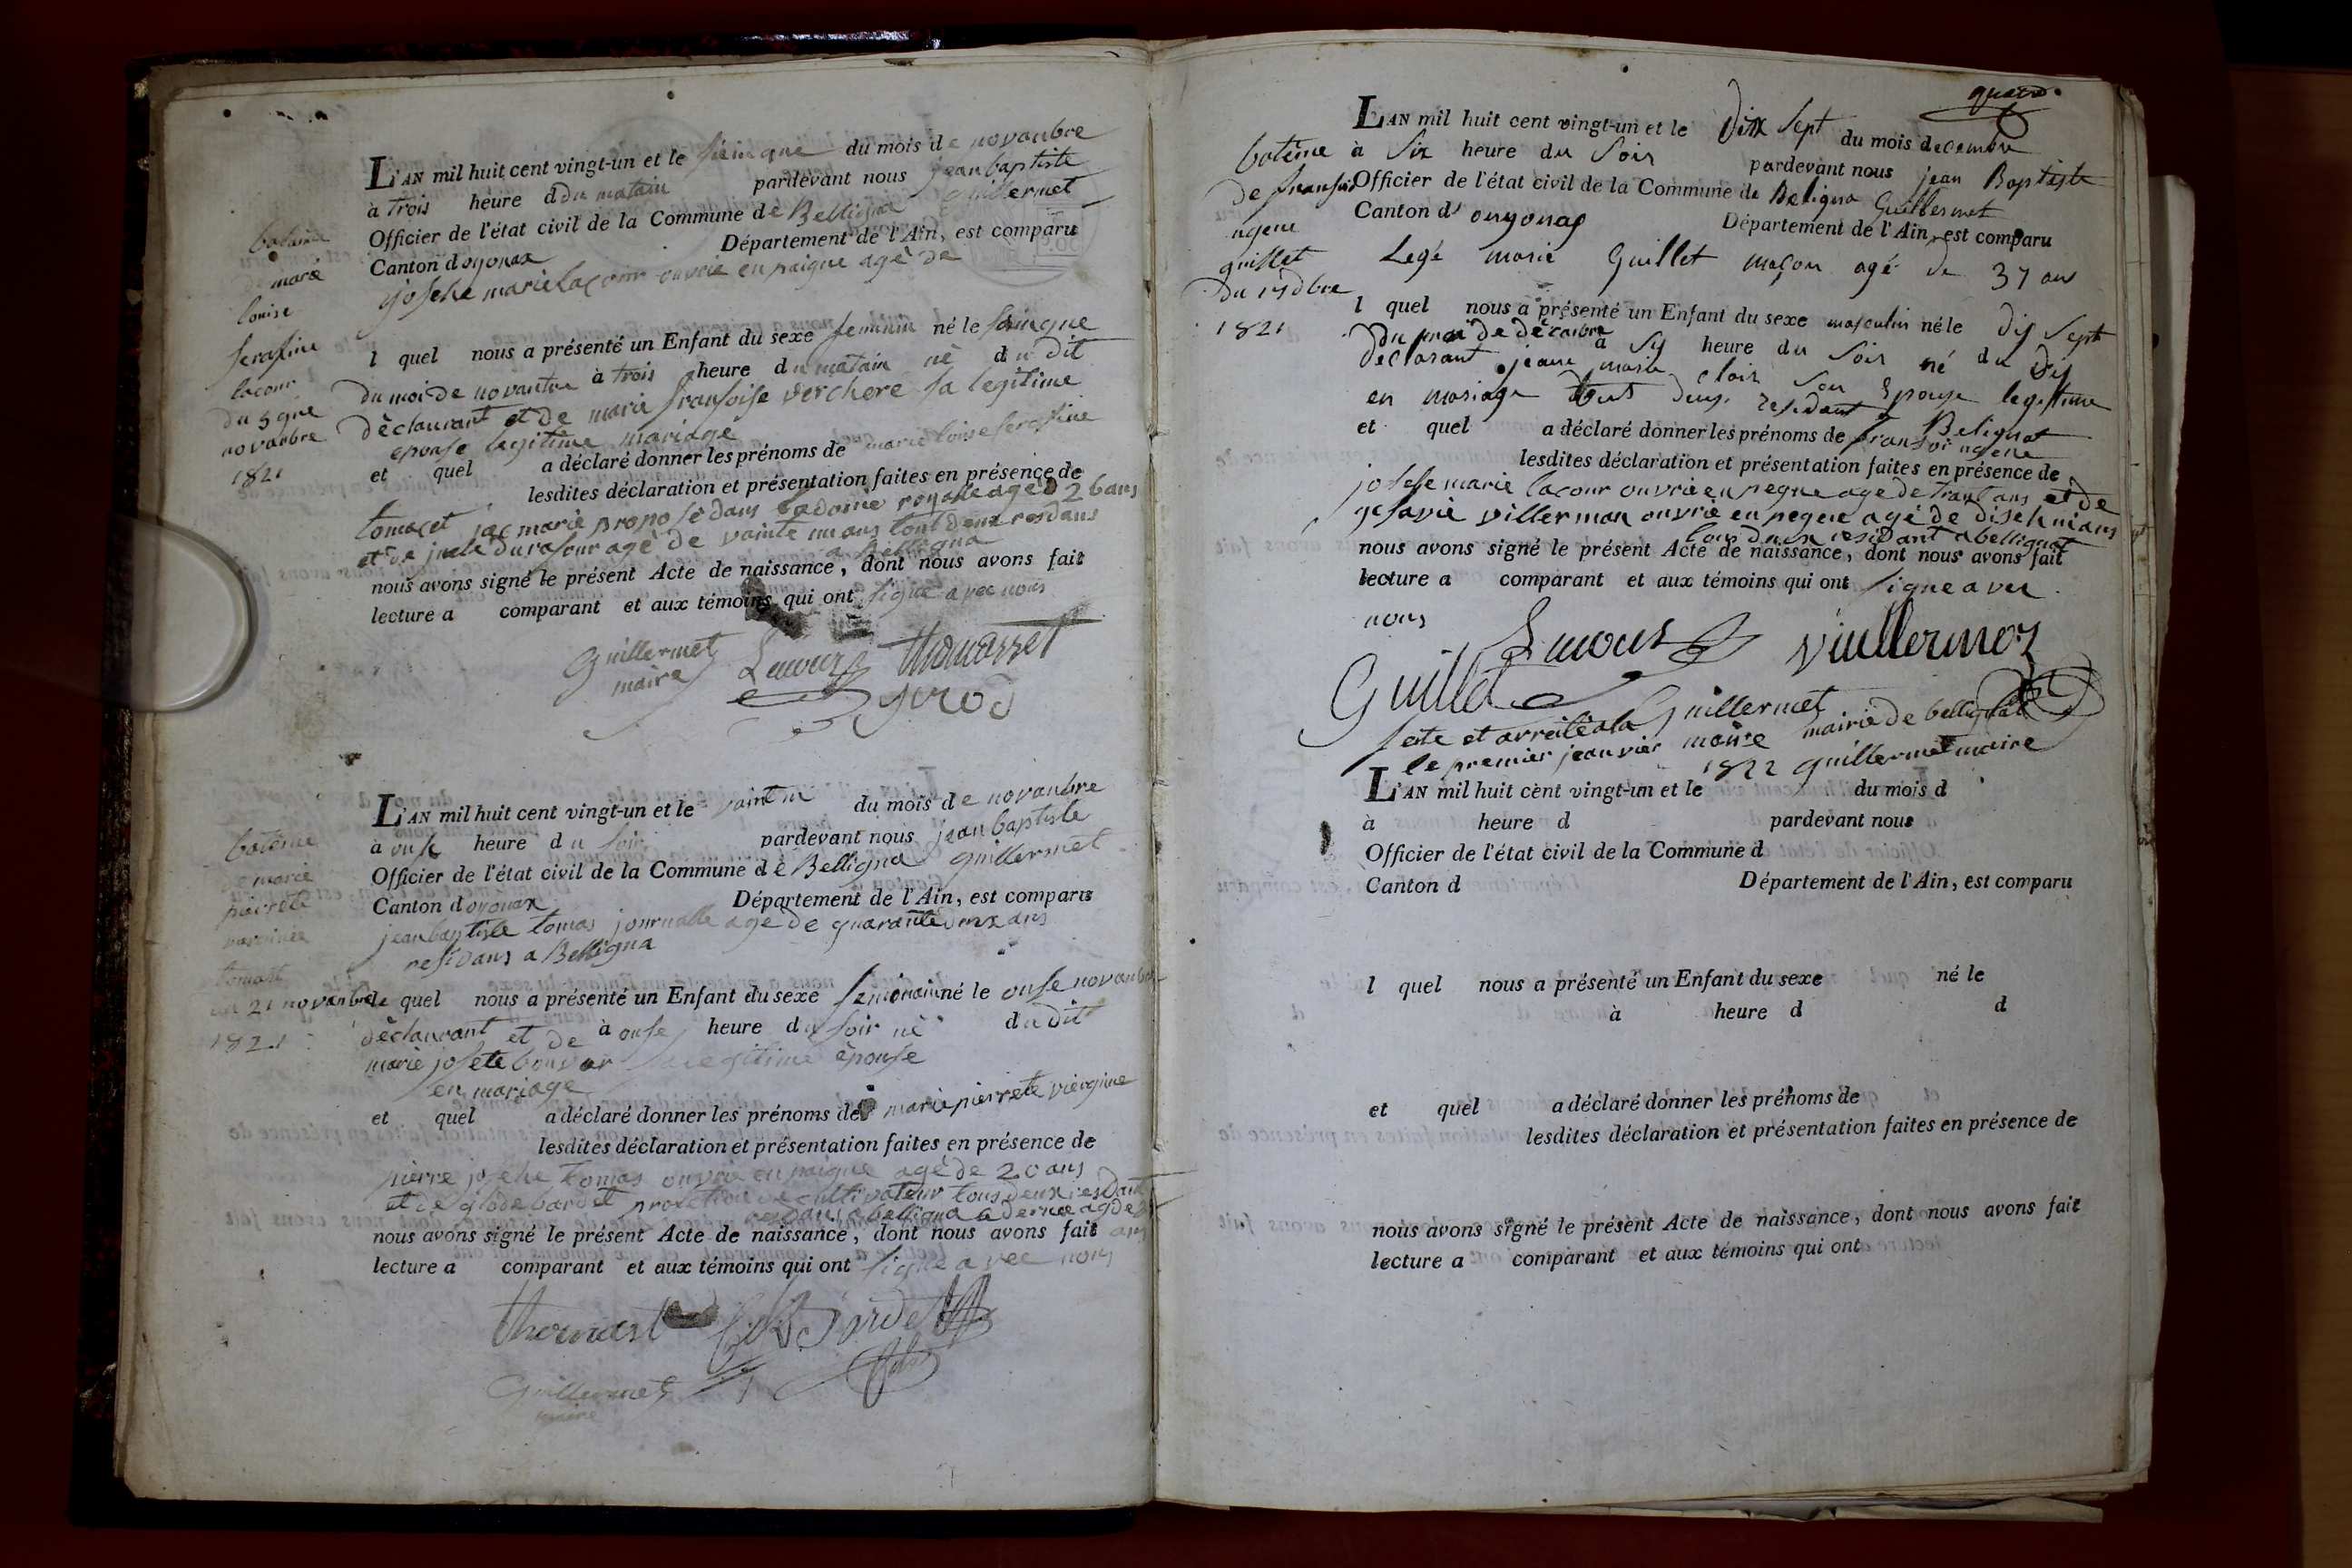 L'AN mil huit cent vingt-un et le sainque du mois de novanbre
à trois heure d du matain pardevant nous jean baptiste
Officier de l'état civil de la Commune de Belligna guillermet
Canton doyonax Département de l'Ain, est comparu
josehe marie lacour ouvrie en paigne agè de
l quel nous a présenté un Enfant du sexe feminin né le sainque
du moi de novanbre à trois heure du matain nè du dit
dèclaurant et de marie fransoise verchere sa legitime
epouse legitime mariage
et quel a déclaré donner les prénoms de marie loise serafine
lesdites déclaration et présentation faites en présence de
tomacet jac marie proposè dans ladoine royalle agè d 26 ans
et de jude durafour agè de vainte un ans tout deux resdans
a Belligna
nous avons signé le présent Acte de naissance, dont nous avons fait
lecture a comparant et aux témoins qui ont signè avec nous
Guillermet Lacour thomasset
maire girod
batème
de marie
louise
serafine
lacour
du 5 gne
novanbre
1821
L'AN mil huit cent vingt-un et le vaint un du mois de novanbre
à onse heure du soir pardevant nous jean baptiste
Officier de l'état civil de la Commune de Belligna guillermet
Canton doyonax Département de l'Ain, est comparu
jean baptiste tomas journalle agè de quarante deux ans
resivans a Belligna
le quel nous a présenté un Enfant du sexe feminain né le onse novanbre
dèclaurant et de à onse heure du soir nè du dit
marie josete bonvar sa legitime èpouse
en mariage
et quel a déclaré donner les prénoms de marie pierrete viergine
lesdites déclaration et présentation faites en présence de
pierre josehe tomas ouvrie en paigne agè de 20 ans
et de glode bardet cultivateur tous deux resdant
a belligna
nous avons signé le présent Acte de naissance, dont nous avons fait
lecture a comparant et aux témoins qui ont signè avec nous
thomas Bardet
Guillermet
maire
batème
de marie
pierrete
tomas
du 21 novanbre
1821
quatre
L'AN mil huit cent vingt-un et le Dix Sept du mois decembre
à Six heure du Soir pardevant nous jean Baptiste
Officier de l'état civil de la Commune de Beligna Guillermet
Canton d' ouyonax Département de l'Ain, est comparu
Legé marie Guillet maçon agé de 37 ans
l quel nous a présenté un Enfant du sexe masculin né le dix Sept
du moi de dècanbre à Six heure du Soir né du dit
declarant jeane marie clair son Epouse legittime
en mariage tout deux residant a Belignat
et quel a déclaré donner les prénoms de fransoi ugene
lesdites déclaration et présentation faites en présence de
josehe marie lacour ouvrie en pegne age de trant ans et de
gesavie villerman ouvrie en pegne agè de diseh uians
tous deux residant a belliguat
nous avons signé le présent Acte de naissance, dont nous avons fait
lecture a comparant et aux témoins qui ont signe avec
nous
Lacour viullermoz
Guillet Guillermet
maire
fete et arreite a la mairie de bellignat
le premier jeanvier 1822 guillermet maire
batème
de fransoi
ugene
guillet
du 17 dbre
1821
L'AN mil huit cent vingt-un et le du mois d
à heure d pardevant nous
Officier de l'état civil de la Commune d
Canton d Département de l'Ain, est comparu
l quel nous a présenté un Enfant du sexe né le
à heure d d
et quel a déclaré donner les prénoms de
lesdites déclaration et présentation faites en présence de
nous avons signé le présent Acte de naissance, dont nous avons fait
lecture a comparant et aux témoins qui ont